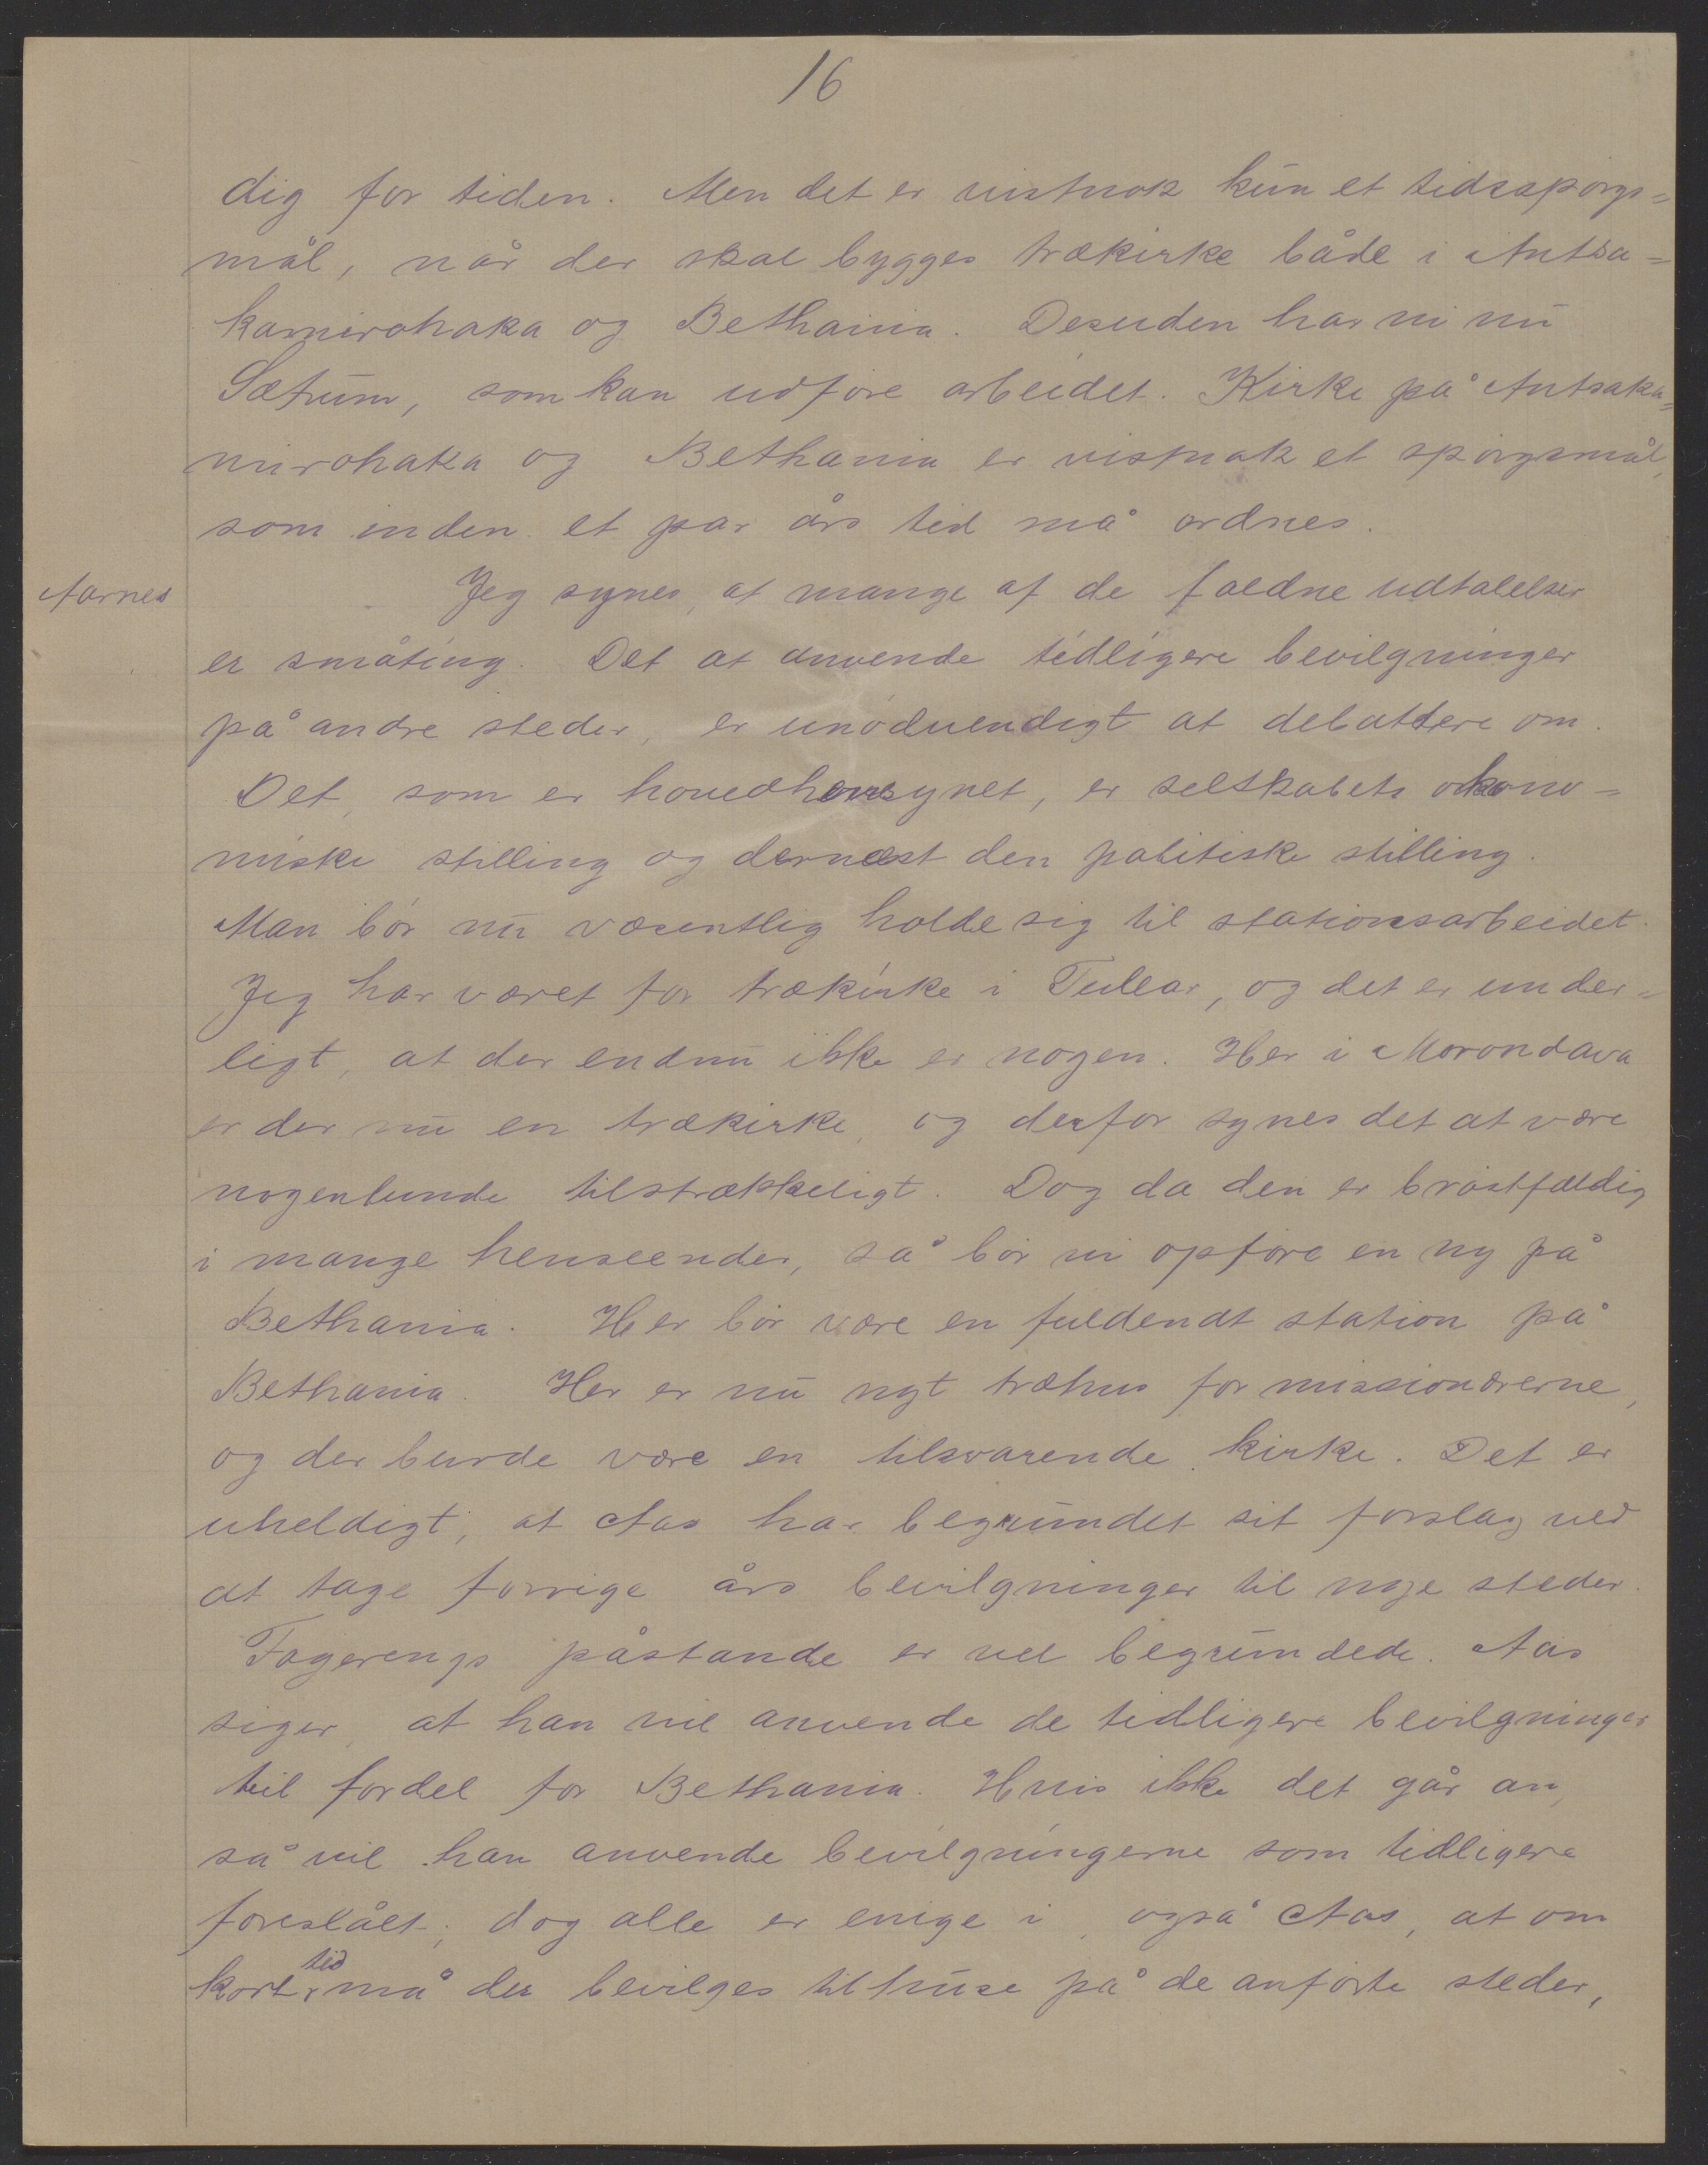 16
dig for tiden. Men det er vistnok kun et tidsspörgs=
mål, når der skal bygges trækirke både i Antsa=
kamirohaka og Bethania. Desuden har vi nu
Sætrum, som kan udföre arbeidet. Kirke på Antsaka=
mirohaka og Bethania er vistnok et spörgsmål,
som inden et par års tid må ordnes.
Aarnes Jeg synes, at mange af de faldne udtalelser
er småting. Det at anvende tidligere bevilgninger
på andre steder, er unödvendigt at debattere om.
Det, som er hovedhensynet, er selskabets økono=
miske stilling og dernæst den politiske stilling.
Man bör nu væsentlig holde sig til stationsarbeidet.
Jeg har været for trækirke i Tulear, og det er under=
ligt, at der endnu ikke er nogen. Her i Morondava
er der nu en trækirke, og derfor synes det at være
nogenlunde tilstrækkeligt. Dog da den er bröstfældig
i mange henseender, så bör vi opföre en ny på
Bethania. Her bör være en fuldendt station på
Bethania. Her er nu nyt træhus for missionærerne,
og der burde være en tilsvarende kirke. Det er
uheldigt, at Aas har begrundet sit forslag ved
at tage forrige års bevilgninger til nye steder.
Fagerengs påstande er vel begrundede. Aas
siger, at han vil anvende de tidligere bevilgninger
til fordel for Bethania. Hvis ikke det går an,
så vil han anvende bevilgningerne som tidligere
foreslået; dog alle er enige i, også Aas, at om
kort tid må der bevilges til huse på de anförte steder,